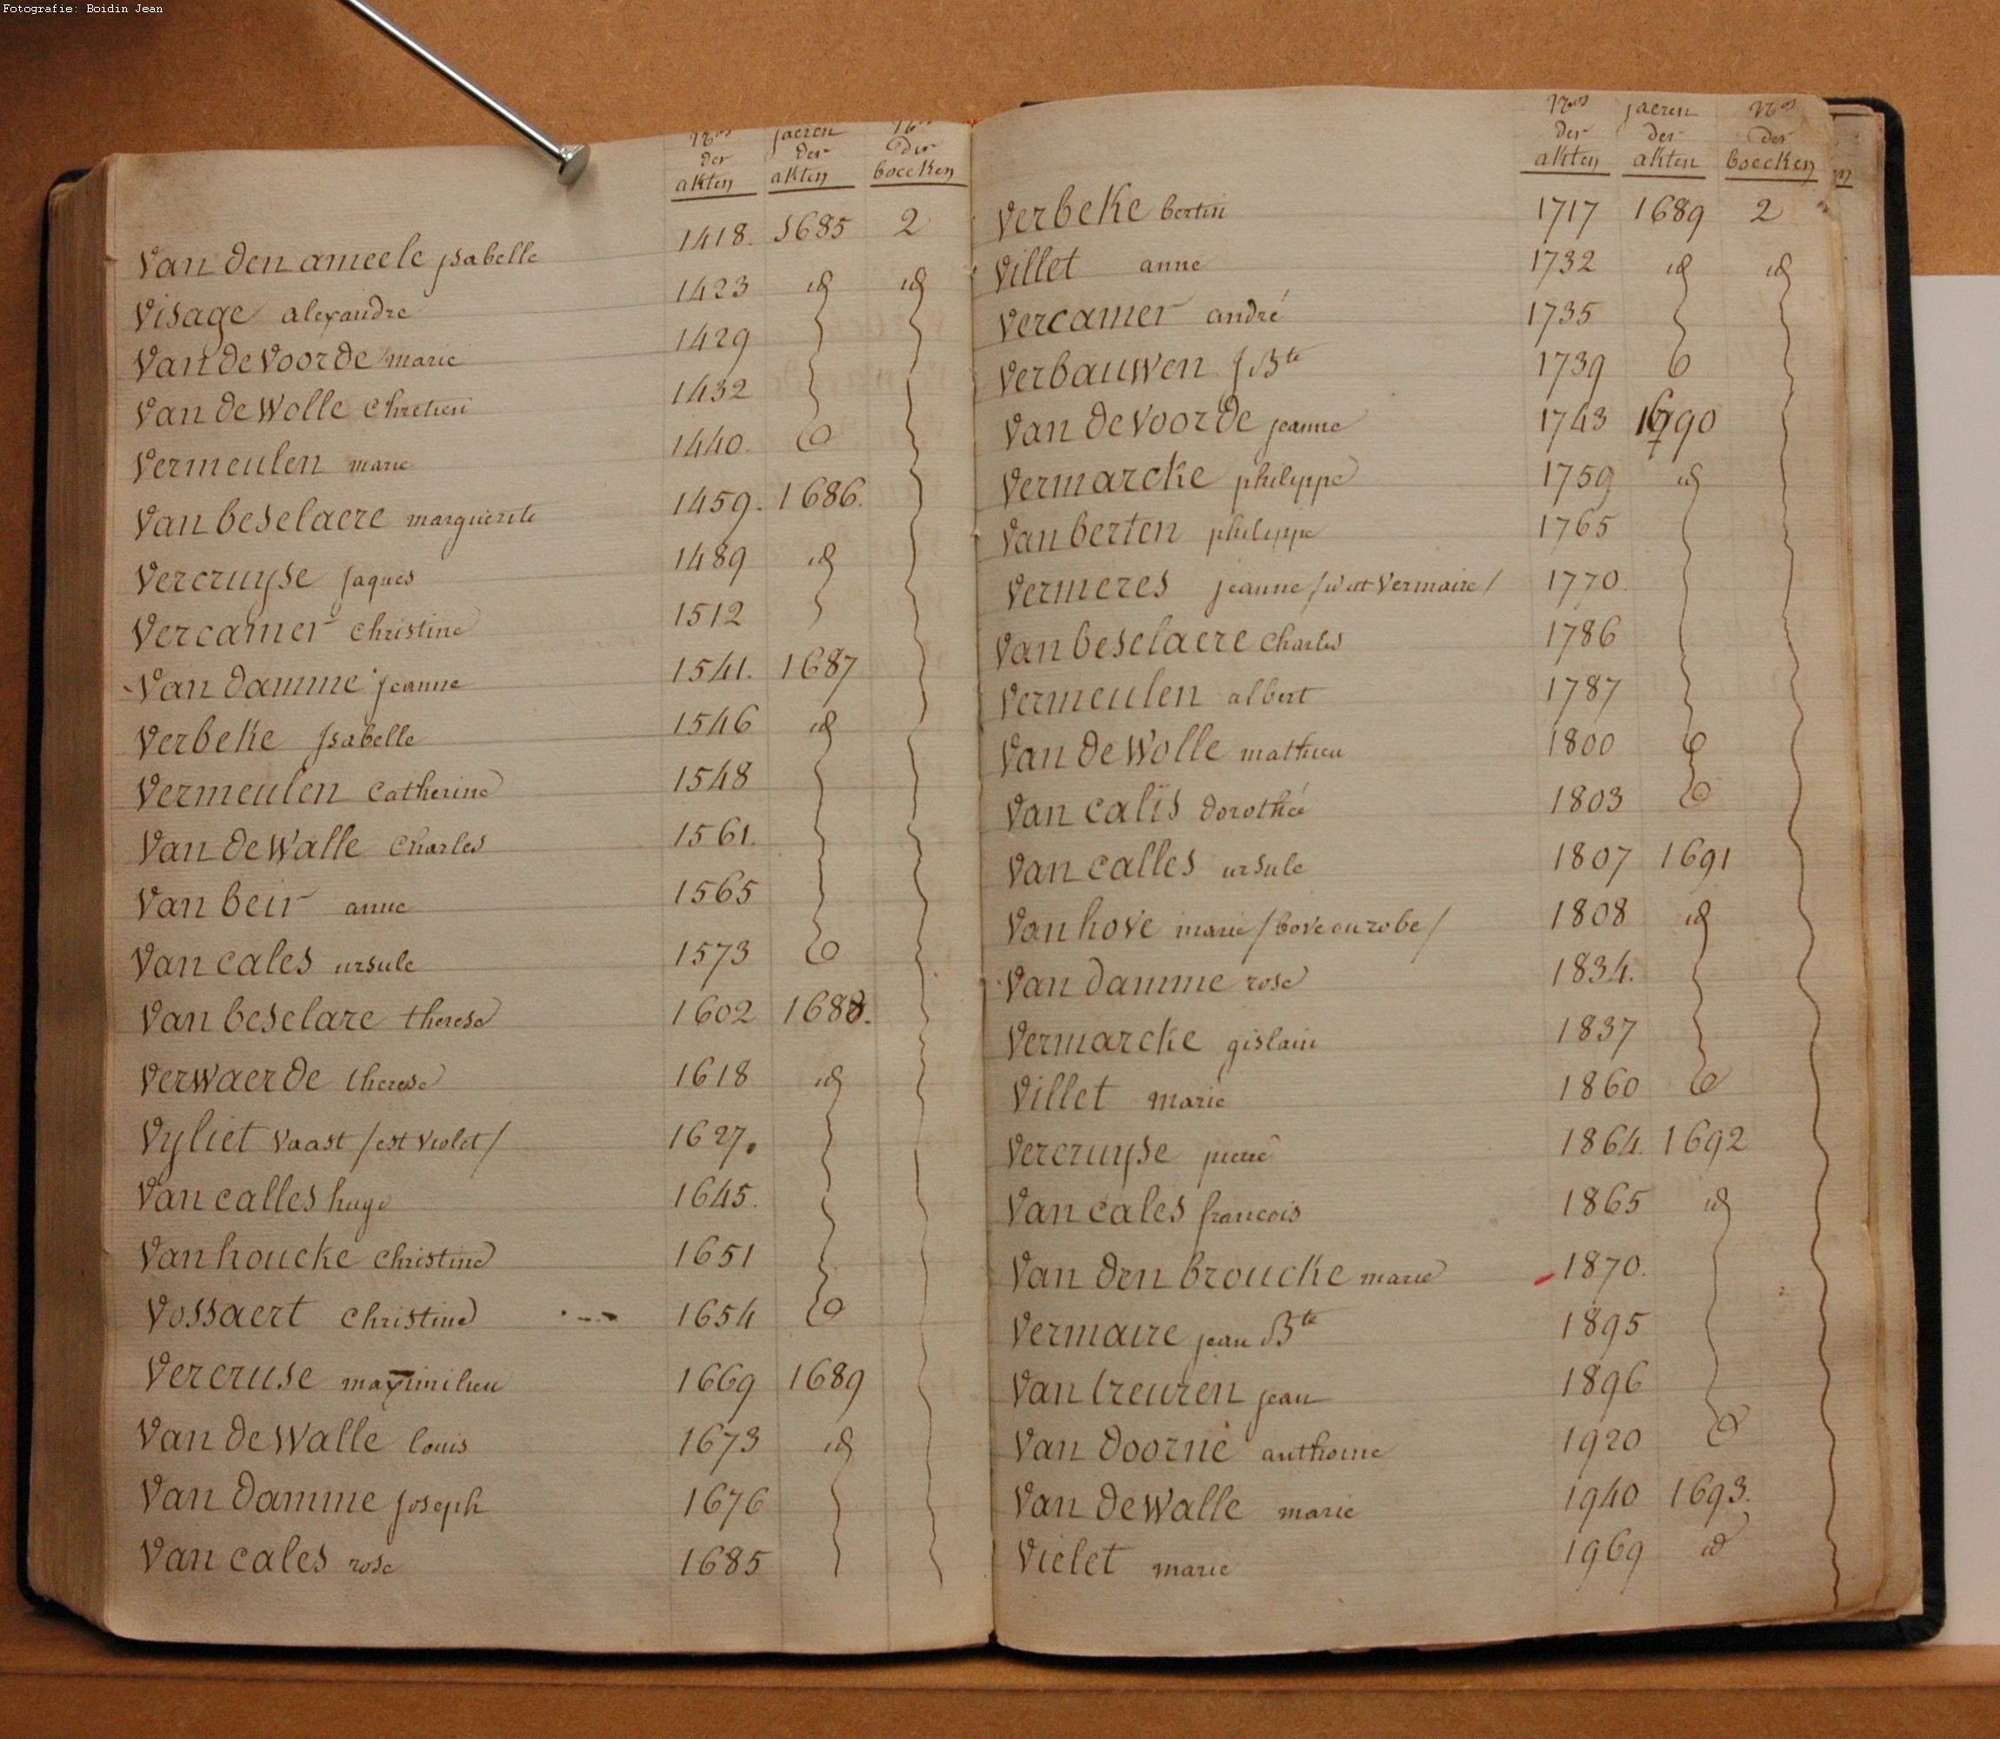 Fotografie: Boidin Jean
Nos der akten jaeren der akten Nos der boecken
Van den ameele ysabelle 1418. 1685 2
Visage alexandre 1423 id id
Van de Voorde marie 1429
Van de Wolle Chretien 1432
Vermeulen marie 1440.
Van beselaere marguerite 1459. 1686.
Vercruyse Jaques 1489 id
Vercamer Christine 1512
Van damme jeanne 1541. 1687
Verbeke ysabelle 1546 id
Vermeulen Catherine 1548
Van de Walle Charles 1561.
Van beir anne 1565
Van cales ursule 1573
Van beselare therese 1602 1688.
Verwaerde therese 1618 id
Vyliet Vaast /est Violet/ 1627.
Van calles hugo 1645.
Van houcke Christine 1651
Vossaert Christine 1654
Vercruse maximilien 1669 1689
Van de Walle louis 1673 id
Van damme joseph 1676
Van cales rose 1685
Nos der akten jaeren der akten Nos der boecken
Verbeke bertin 1717 1689 2
Villet anne 1732 id id
Vercamer andré 1735
Verbauwen J Bte 1739
Van de Voorde jeanne 1743 1690
Vermarcke philippe 1759 id
Van berten philippe 1765
Vermeres jeanne /wat Vermaire/ 1770.
Van beselaere Charles 1786
Vermeulen albert 1787
Van de Wolle mathieu 1800
Van calïs dorothée 1803
Van calles ursule 1807 1691
Van hove marie /bove ou robe/ 1808 id
Van damme rose 1834.
Vermarcke gislain 1837
Villet marie 1860
Vercruyse pierre 1864. 1692
Van cales francois 1865 id
Van den broucke marie 1870.
Vermaire jean Bte 1895
Van treuren jean 1896
Van doorne anthoine 1920
Van de Walle marie 1940 1693.
Vielet marie 1969 id